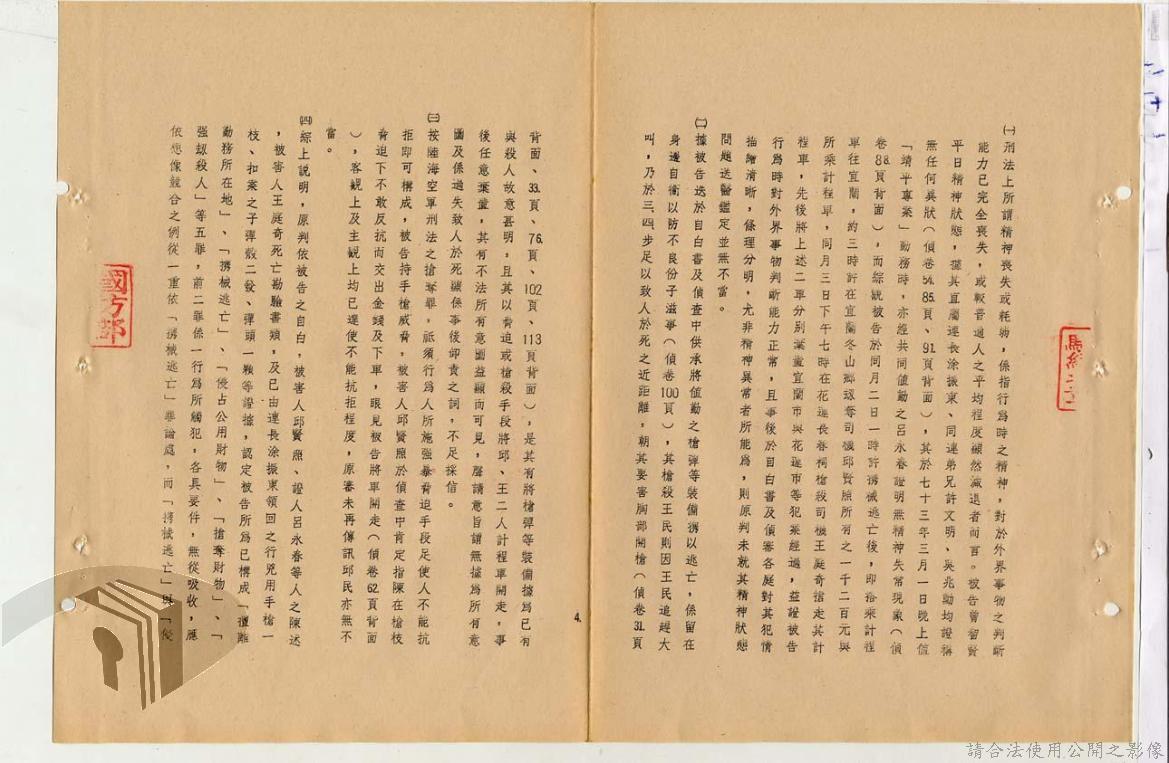 ㈠刑法上所謂精神喪失或耗弱，係指行為時之精神，對於外界事物之判斷
能力已完全喪失，或較普通人之平均程度顯然減退者而言。被告曾留賢
平日精神狀態，據其直屬連長涂振東、同連弟兄許文明、吳兆勛均證稱
無任何異狀（偵卷54.85.頁、91.頁背面），其於七十三年三月一日晚上值
「靖平專案」勤務時，亦經共同值勤之呂永春證明無精神失常現象（偵
卷88.頁背面），而綜觀被告於同月二日一時許携械逃亡後，即搭乘計程
車往宜蘭，約三時許在宜蘭冬山鄉逐奪司機邱賢照所有之一千二百元與
所乘計程車，同月三日下午七時在花蓮長春祠槍殺司機王庭奇搶走其計
程車，先後將上述二車分別棄置宜蘭市與花蓮市等犯案經過，益證被告
行為時對外界事物判斷能力正常，且事後於自白書及偵審各庭對其犯情
描繪清晰，條理分明，尤非精神異常者所能為，則原判未就其精神狀態
問題送醫鑑定並無不當。
㈡據被告迭於自白書及偵查中供承將值勤之槍彈等裝備携以逃亡，係留在
身邊自衛以防不良份子滋事（偵卷100頁），其槍殺王民則因王民追趕大
叫，乃於三、四步足以致人於死之近距離，朝其要害胸部開槍（偵卷31.頁
背面、33.頁、76.頁、102頁、113頁背面），是其有將槍彈等裝備據為已有
與殺人故意甚明，且其以脅迫或槍殺手段將邱、王二人計程車開走，事
後任意棄置，其有不法所有意圖益顯而可見，聲請意旨謂無據為所有意
圖及係過失致人於死纔係事後卸責之詞，不足採信。
㈢按陸海空軍刑法之搶奪罪，祇須行為人所施強暴脅迫手段足使人不能抗
拒即可構成，被告持手槍威脅，被害人邱賢照於偵查中肯定指陳在槍枝
脅迫下不敢反抗而交出金錢及下車，眼見被告將車開走（偵卷62.頁背面
），客觀上及主觀上均已達使不能抗拒程度，原審未再傳訊邱民亦無不
當。
㈣綜上說明，原判依被告之自白，被害人邱賢照、證人呂永春等人之陳述
，被害人王庭奇死亡勘驗書類，及已由連長涂振東領回之行兇用手槍一
枝、扣案之子彈殼二發、彈頭一顆等證據，認定被告所為已構成「擅離
勤務所在地」、「携械逃亡」、「侵占公用財物」、「搶奪財物」、「
強劫殺人」等五罪，前二罪係一行為所觸犯，各具要件，無從吸收，應
依想像競合之例從一重依「携械逃亡」罪論處，而「携械逃亡」與「侵
4.
國防部
請合法使用公開之影像